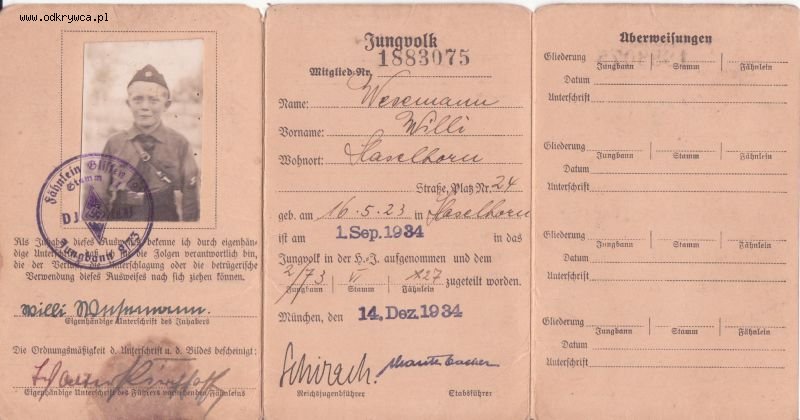 www.odkrywca.pl
Fähnlein
Stamm
D.J.
Jungbann 2/73
Als Inhaber dieses Ausweises bekenne ich durch eigenhän-
dige Unterschrift, daß ich für die Folgen verantwortlich bin,
die der Verlust, die Unterschlagung oder die betrügerische
Verwendung dieses Ausweises nach sich ziehen können.
Willi Wesemann.
Eigenhändige Unterschrift des Inhabers
Die Ordnungsmäßigkeit d. Unterschrift u. d. Bildes bescheinigt:
Eigenhändige Unterschrift des Führers vorstehenden Fähnleins
Jungvolk
1883075
Mitglied-Nr.
Name: Wesemann
Vorname: Willi
Wohnort: Haselhorn
Straße, Platz Nr. 24
geb. am 16.5.23 in Haselhorn
ist am 1. Sep. 1934 in das
Jungvolk in der H.-J. aufgenommen und dem
2/73 | V | X27 zugeteilt worden.
Jungbann Stamm Fähnlein
München, den 14. Dez. 1934
Schirach.
Reichsjugendführer Stabsführer
Überweisungen
Gliederung
Jungbann Stamm Fähnlein
Datum
Unterschrift
Gliederung
Jungbann Stamm Fähnlein
Datum
Unterschrift
Gliederung
Jungbann Stamm Fähnlein
Datum
Unterschrift
Gliederung
Jungbann Stamm Fähnlein
Datum
Unterschrift